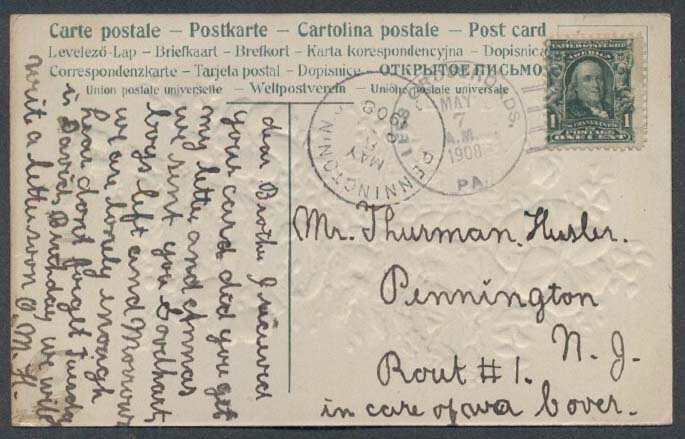 Carte postale – Postkarte – Cartolina postale – Post card
Levelező-Lap – Briefkaart – Brefkort – Karta korespondencyjna – Dopisnica
Correspondenzkarte – Tarjeta postal – Dopisnice – ОТКРЫТОЕ ПИСЬМО
Union postale universelle – Weltpostverein – Unione postale universale
UNITED STATES OF AMERICA
FRANKLIN
1 POSTAGE 1
ONE CENT
MAY
7
A.M.
1908
PA.
PENNINGTON
MAY
8
1908
dear Brother I recieved
your card did you get
my letter and Emmas
we sent you
boys left and
we are lonely enough
hear dont forget
is Davids Birthday we will
writ a letter soon
Mr. Thurman Husler.
Pennington
N. J.
Rout #1.
in care of